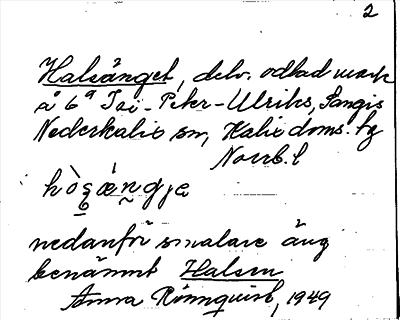 2
Halsänget, delv. odlad mark
å 6ª Poi-Peter-Ulriks, Sangis
Nederkalix sn, Kalix doms. tg
Norrb. l
nedanför smalare äng
benämnt Halsen
Anna Rönnquist, 1949